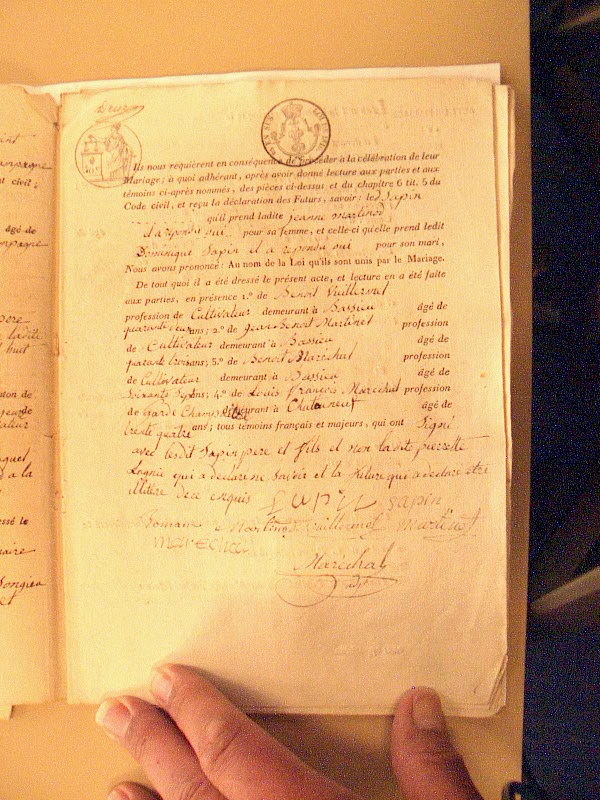 Ils nous requièrent en conséquence de procéder à la célébration de leur
Mariage; à quoi adhérant, après avoir donné lecture aux parties et aux
témoins ci-après nommés, des pièces ci-dessus et du chapitre 6 tit. 5 du
Code civil, et reçu la déclaration des Futurs, savoir: led Sapin
qu'il prend ladite jeanne martinod
il a repondu oui pour sa femme, et celle-ci qu'elle prend ledit
Dominique Sapin et a repondu oui pour son mari,
Nous avons prononcé: Au nom de la Loi qu'ils sont unis par le Mariage.
De tout quoi il a été dressé le présent acte, et lecture en a été faite
aux parties, en présence 1.° de Benoit Vuillermet
profession de Cultivateur demeurant à Bassieu âgé de
quarante ans; 2.° de Jean Benoit Martinet profession
de Cultivateur demeurant à Bassieu âgé de
quarant trois ans; 3.° de Benoit Maréchal profession
de Cultivateur demeurant à Bassieu âgé de
ans; 4.° de Louis François Marechal profession
de Garde Champêtre demeurant à Chateuneuf âgé de
trente quatre ans; tous témoins français et majeurs, qui ont Signé
avec lesdit Sapin pere et fils et non la dite pierrette
qui a declaré ne Savoir et la future qui a declaré etre
illitere de ce enquis Sapin
Martinod Vuillermet Martinet
marechal
Marechal